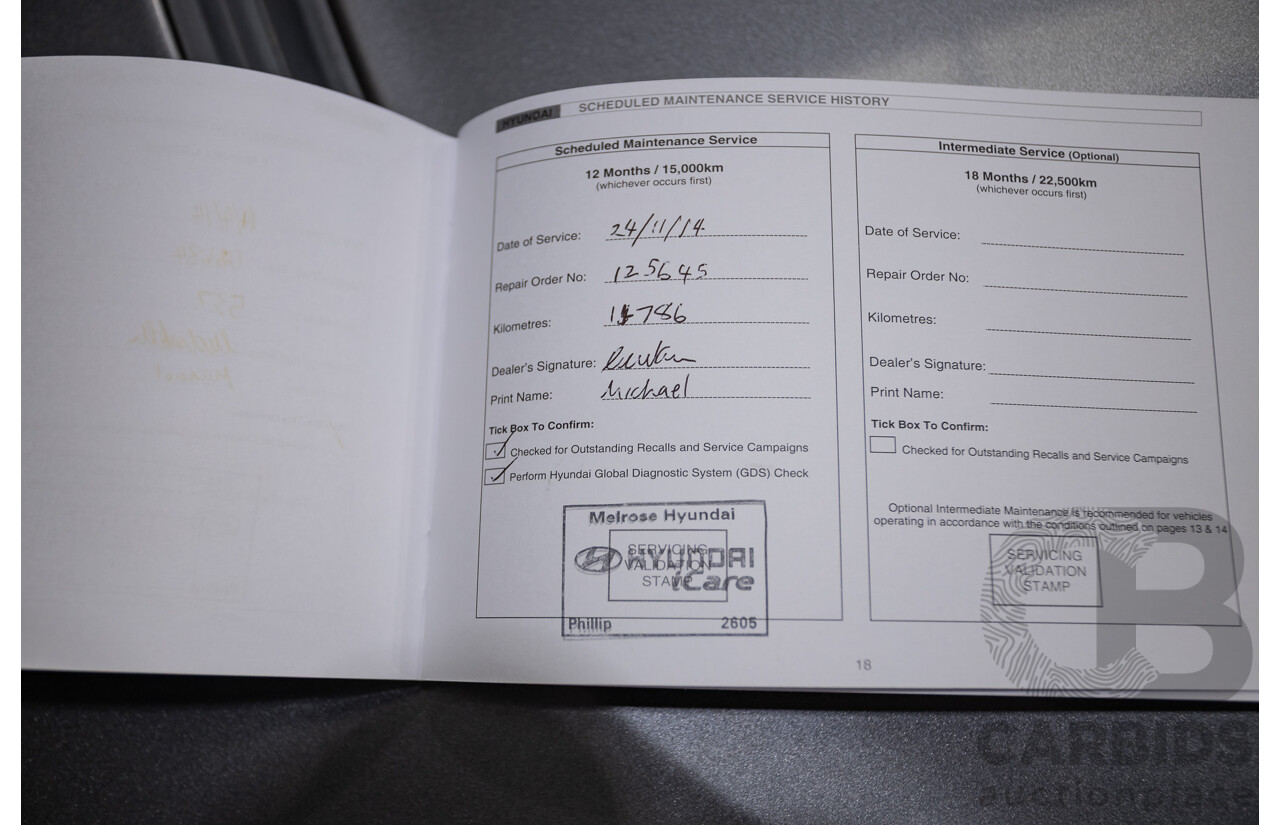 HYUNDAI SCHEDULED MAINTENANCE SERVICE HISTORY
Scheduled Maintenance Service
12 Months / 15,000km
(whichever occurs first)
Date of Service: 24/11/14
Repair Order No: 125645
Kilometres: 786
Dealer's Signature:
Print Name: Michael
Tick Box To Confirm:
Checked for Outstanding Recalls and Service Campaigns
Perform Hyundai Global Diagnostic System (GDS) Check
Melrose Hyundai
HYUNDAI
iCare
SERVICING
VALIDATION
STAMP
Phillip 2605
Intermediate Service (Optional)
18 Months / 22,500km
(whichever occurs first)
Date of Service:
Repair Order No:
Kilometres:
Dealer's Signature:
Print Name:
Tick Box To Confirm:
Checked for Outstanding Recalls and Service Campaigns
Optional Intermediate Maintenance is recommended for vehicles
operating in accordance with the conditions outlined on pages 13 & 14
SERVICING
VALIDATION
STAMP
18
CB
CARBIDS
auctionplace